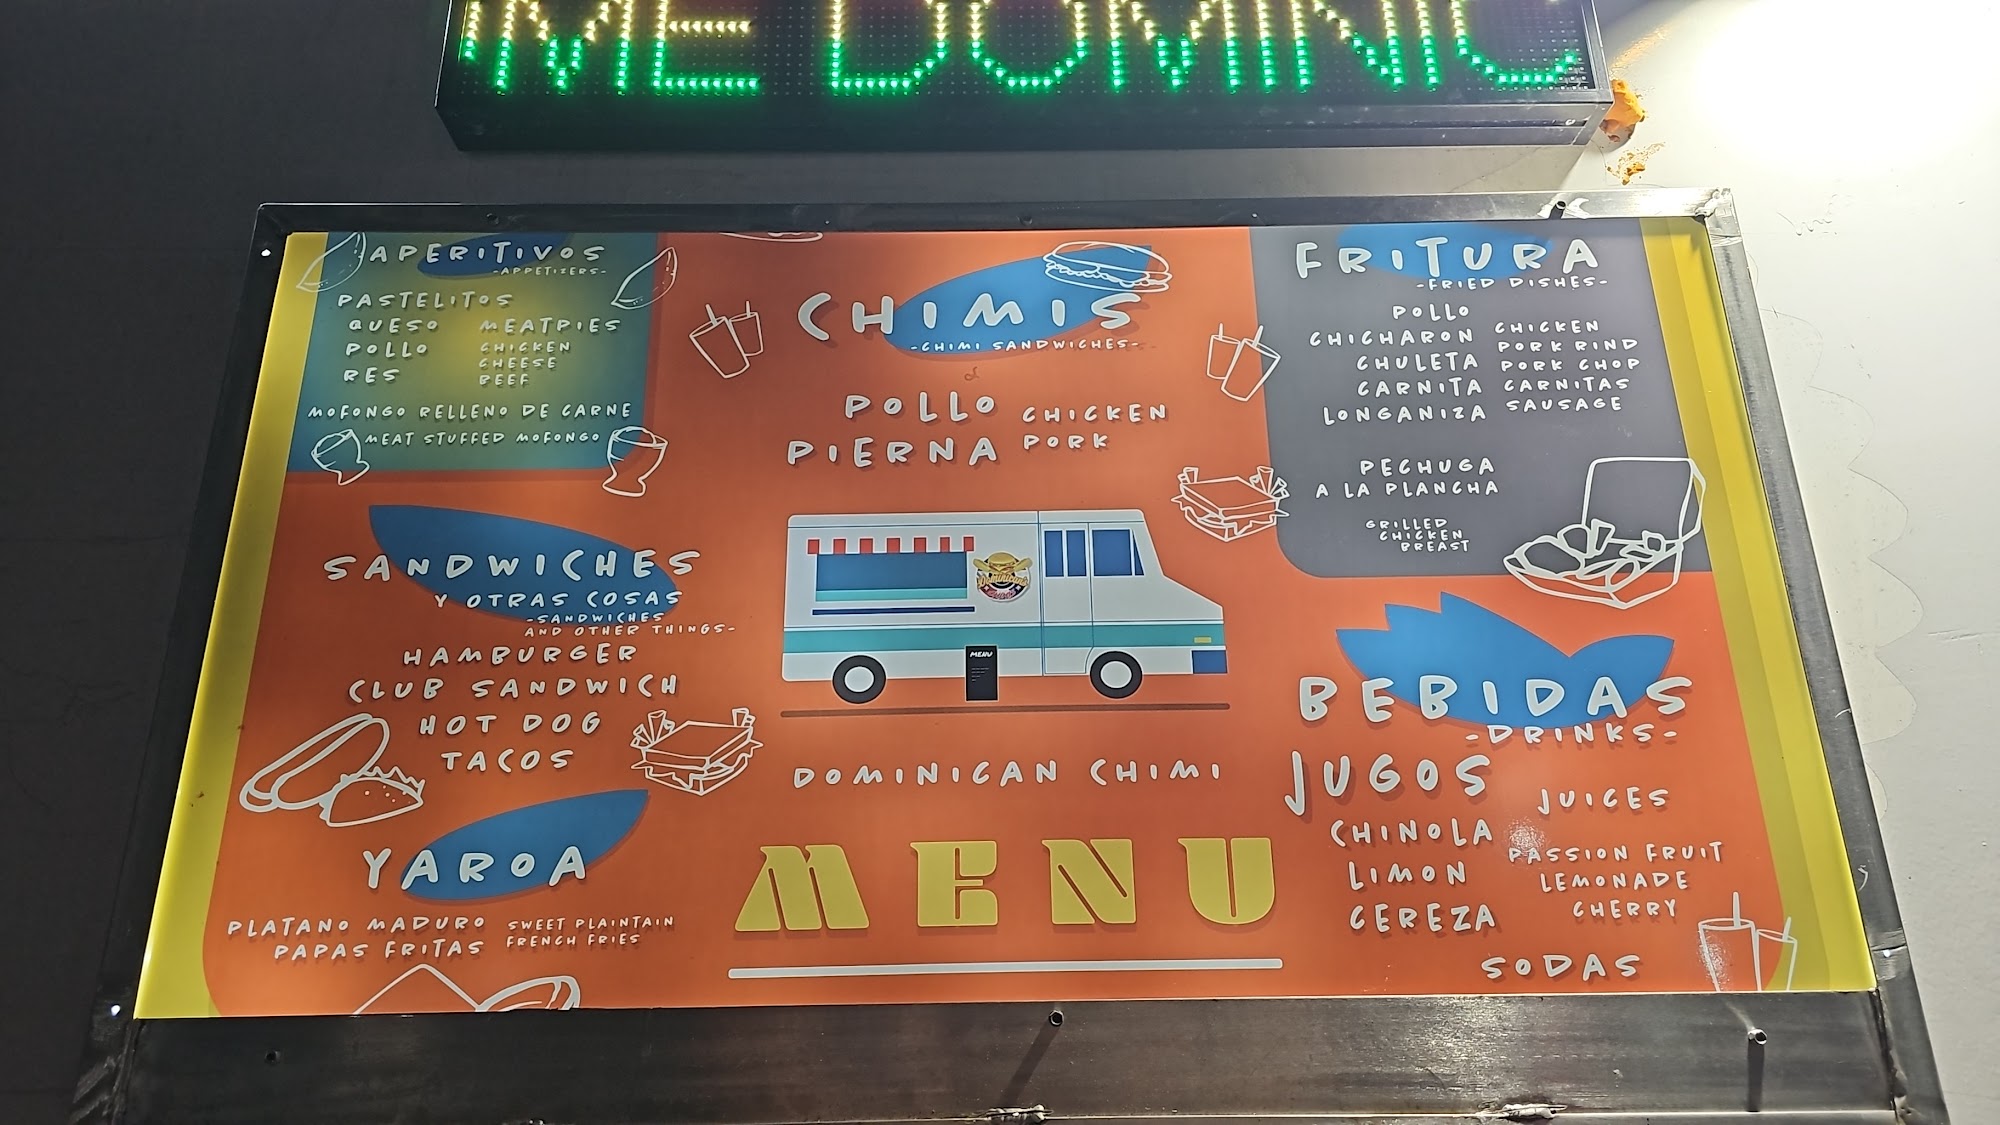 ME DOMINIC
APERITIVOS
-APPETIZERS-
PASTELITOS
QUESO MEATPIES
POLLO CHICKEN
CHEESE
RES BEEF
MOFONGO RELLENO DE CARNE
MEAT STUFFED MOFONGO
CHIMIS
-CHIMI SANDWICHES-
POLLO CHICKEN
PIERNA PORK
FRITURA
-FRIED DISHES-
POLLO
CHICHARON CHICKEN
CHULETA PORK RIND
CARNITA PORK CHOP
LONGANIZA CARNITAS
SAUSAGE
PECHUGA
A LA PLANCHA
GRILLED
CHICKEN
BREAST
SANDWICHES
Y OTRAS COSAS
-SANDWICHES
AND OTHER THINGS-
HAMBURGER
CLUB SANDWICH
HOT DOG
TACOS
YAROA
PLATANO MADURO SWEET PLAINTAIN
PAPAS FRITAS FRENCH FRIES
Dominican
MENU
DOMINICAN CHIMI
MENU
BEBIDAS
-DRINKS-
JUGOS JUICES
CHINOLA PASSION FRUIT
LIMON LEMONADE
CEREZA CHERRY
SODAS